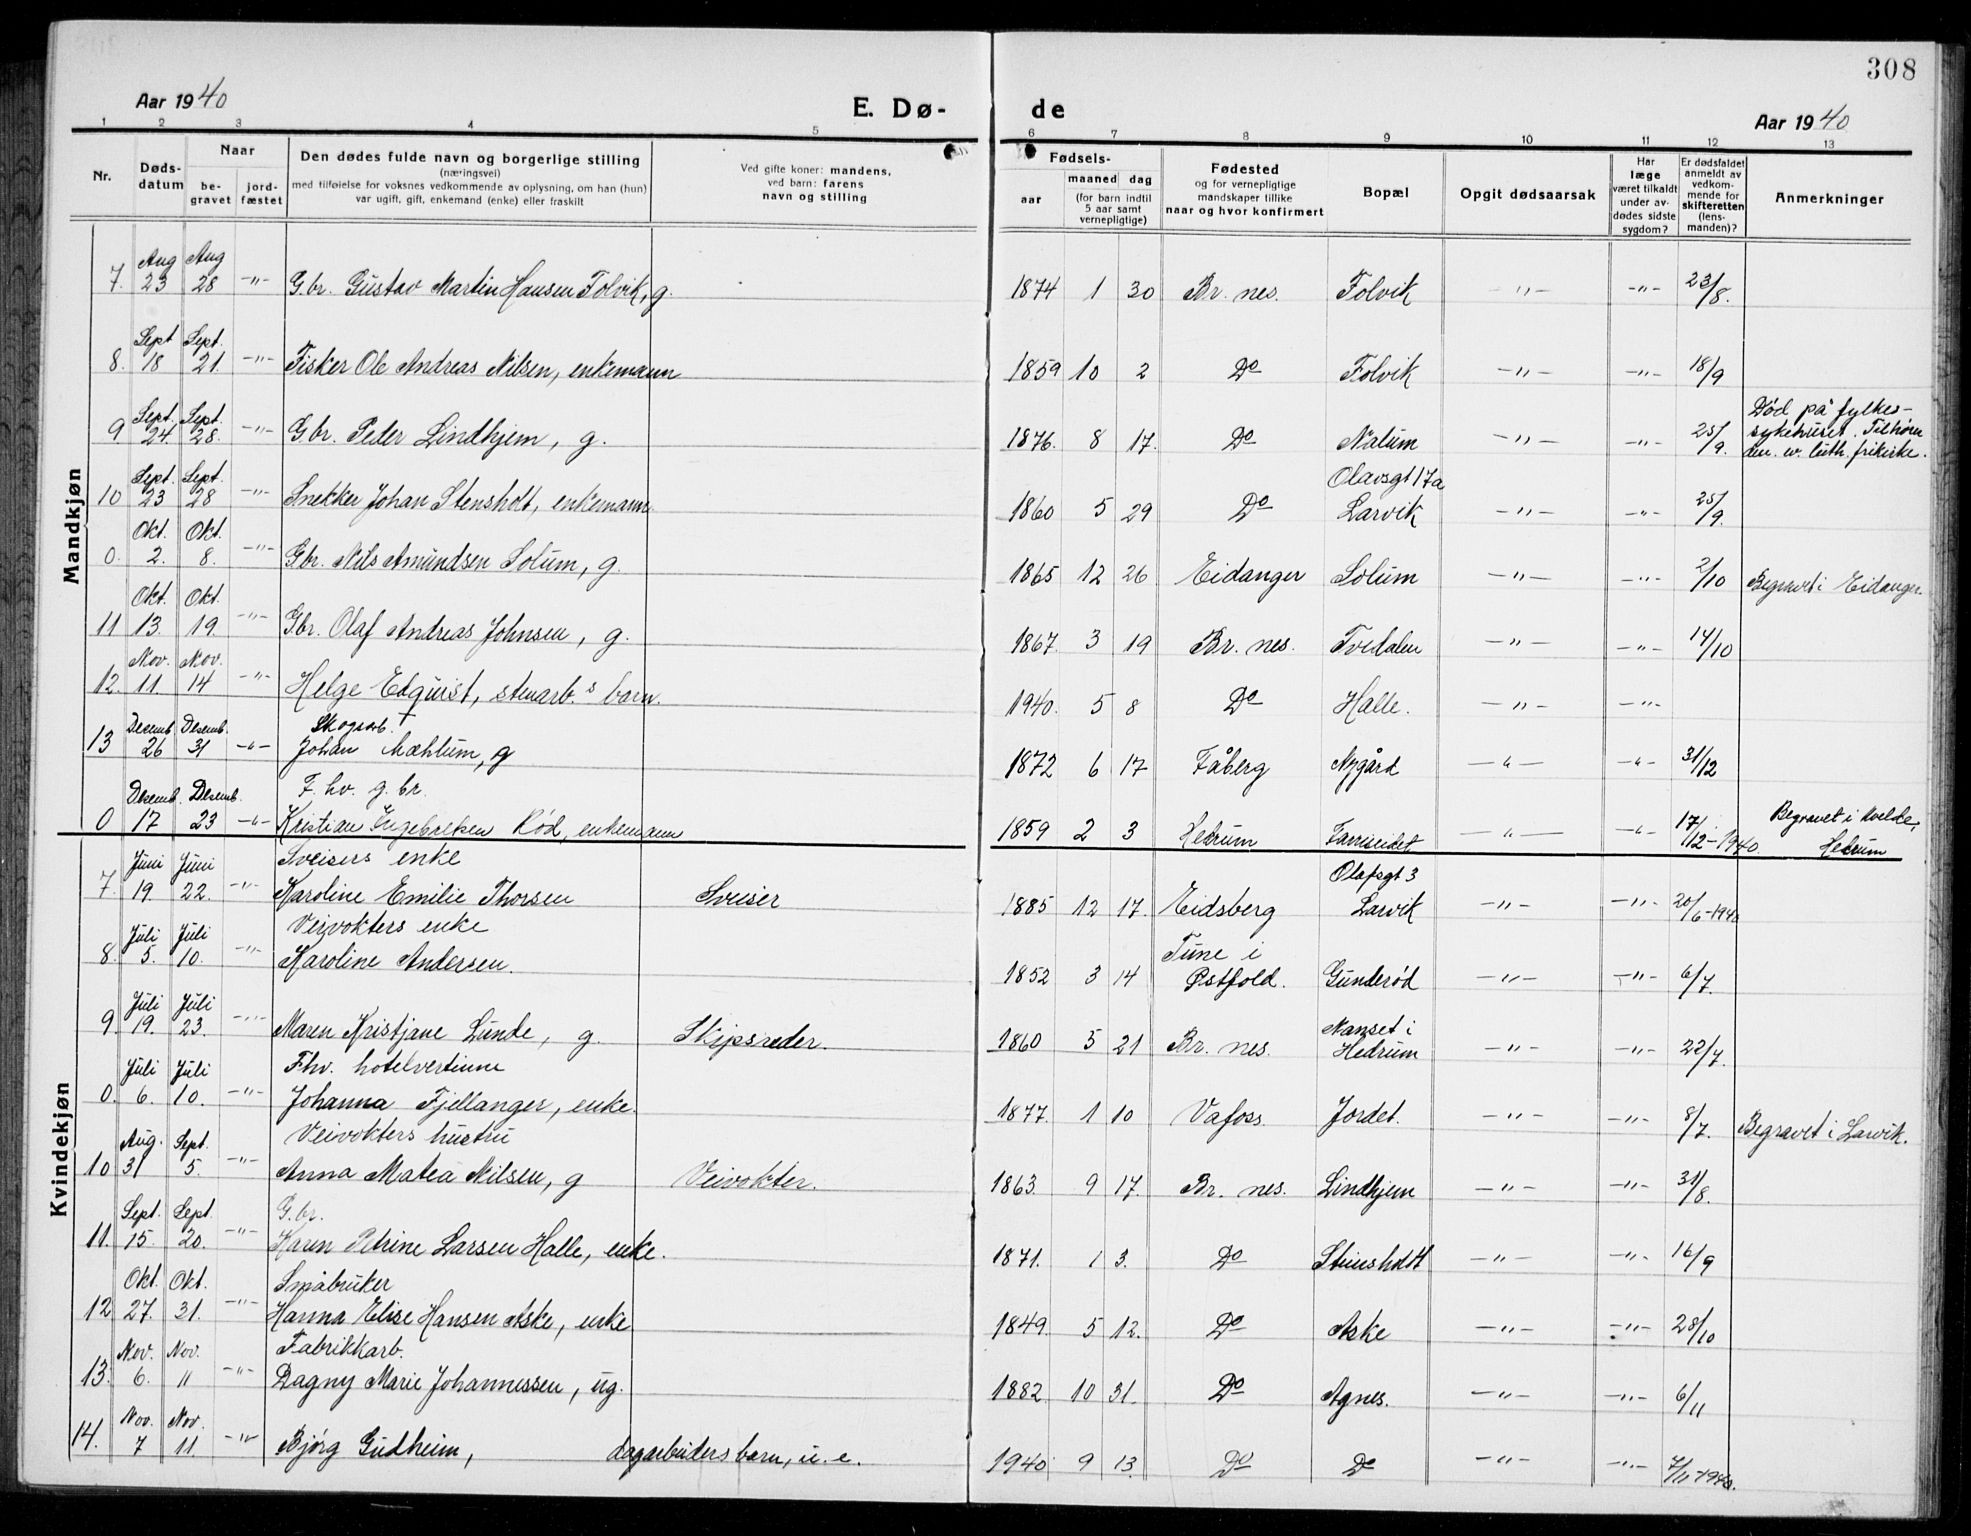 308
Aar 1940
E. Dø-
de
Aar 1940
1 2 3 4 5 6 7 8 9 10 11 12 13
Nr.
Døds-
datum
Naar
be-
gravet
jord-
fæstet
Den dødes fulde navn og borgerlige stilling
(næringsvei)
med tilføielse for voksnes vedkommende av oplysning, om han (hun)
var ugift, gift, enkemand (enke) eller fraskilt
Ved gifte koner: mandens,
ved barn: farens
navn og stilling
Fødsels-
aar
maaned dag
(for barn indtil
5 aar samt
vernepligtige)
Fødested
og for vernepligtige
mandskaper tillike
naar og hvor konfirmert
Bopæl
Opgit dødsaarsak
Har
læge
været tilkaldt
under av-
dødes sidste
sygdom?
Er dødsfaldet
anmeldt av
vedkom-
mende for
skifteretten
(lens-
manden)?
Anmerkninger
Mandkjøn
Aug Aug
7. 23 28 -"- G.br. Gustav Martin Hansen Folvik, g. 1874 1 30 Br. nes. Folvik -"- -"- 23/8.
Sept Sept.
8. 18 21. -"- Fisker Ole Andreas Nilsen, enkemann 1859 10 2 Do Folvik -"- -"- 18/9
Sept. Sept. Død på fylkes-
9 24. 28. -"- Gbr. Peder Lindhjem, g. 1876. 8 17. Do Nalum -"- -"- 25/9. sykehuset. Tilhører
den ev. luth. frikirke.
Sept. Sept. Olavsgt 17a
10 23 28 -"- Snekker Johan Stensholt, enkemann 1860 5 29 Do Larvik -"- -"- 25/9.
Okt. Okt.
0. 2. 8. -"- Gbr. Nils Amundsen Solum, g. 1865 12 26 Eidanger Solum -"- -"- 2/10 Begravet i Eidanger.
Okt. Okt.
11 13. 19. -"- Gbr. Olaf Andreas Johnsen, g. 1867. 3 19 Br. nes. Tvedalen -"- -"- 14/10
Nov. Nov.
12. 11. 14 -"- Helge Edquist, stenarb.s barn. 1940. 5 8 Do Halle. -"- -"-
Desemb. Desemb. Skogsarb.
13 26 31 -"- Johan Mæhlum, g 1872 6 17 Fåberg Nygård -"- -"- 31/12
Desemb. Desemb. F. hv. g. br. Begravet i Kvelde,
0 17 23 -"- Kristian Engebretsen Rød, enkemann 1859 2 3 Hedrum Farriseidet -"- -"- 17/12-1940. Hedrum
Kvindekjøn
Juni Juni Sveisers enke Olafsgt 3
7. 19. 22. -"- Karoline Emilie Thorsen Sveiser 1885 12 17. Eidsberg Larvik -"- -"- 20/6-1940
Juli Juli Veivokters enke Tune i
8. 5. 10. -"- Karoline Andersen. 1852 3 14 Østfold. Gunderød -"- -"- 6/7.
Juli Juli Nanset i
9. 19. 23. -"- Maren Kristjane Lunde, g. Skipsreder. 1860 5 21 Br. nes. Hedrum -"- -"- 22/7.
Juli Juli Fhv. hotelvertinne
0. 6. 10. -"- Johanna Fjellanger, enke. 1877. 1 10 Vafoss. Jordet. -"- -"- 8/7. Begravet i Larvik.
Aug. Sept. Veivokters hustru
10 31 5. -"- Anna Matea Nilsen, g Veivokter. 1863. 9 17. Br. nes. Lindhjem -"- -"- 31/8.
Sept. Sept. G.br.
11. 15. 20. -"- Karen Petrine Larsen Halle, enke. 1871. 1 3. Do Stensholdt -"- -"- 16/9
Okt. Okt. Småbruker
12 27. 31. -"- Hanna Elise Hansen Aske, enke 1849. 5 12. Do Aske -"- -"- 28/10
Nov. Nov. Fabrikkarb.
13. 6. 11 -"- Dagny Marie Johannessen, ug. 1882. 10 31. Do Agnes. -"- -"- 6/11
Nov. Nov.
14. 7 11. -"- Bjørg Gudheim, dagarbeiders barn, u. e. 1940 9 13. Do Do -"- -"- 7/11-1940.